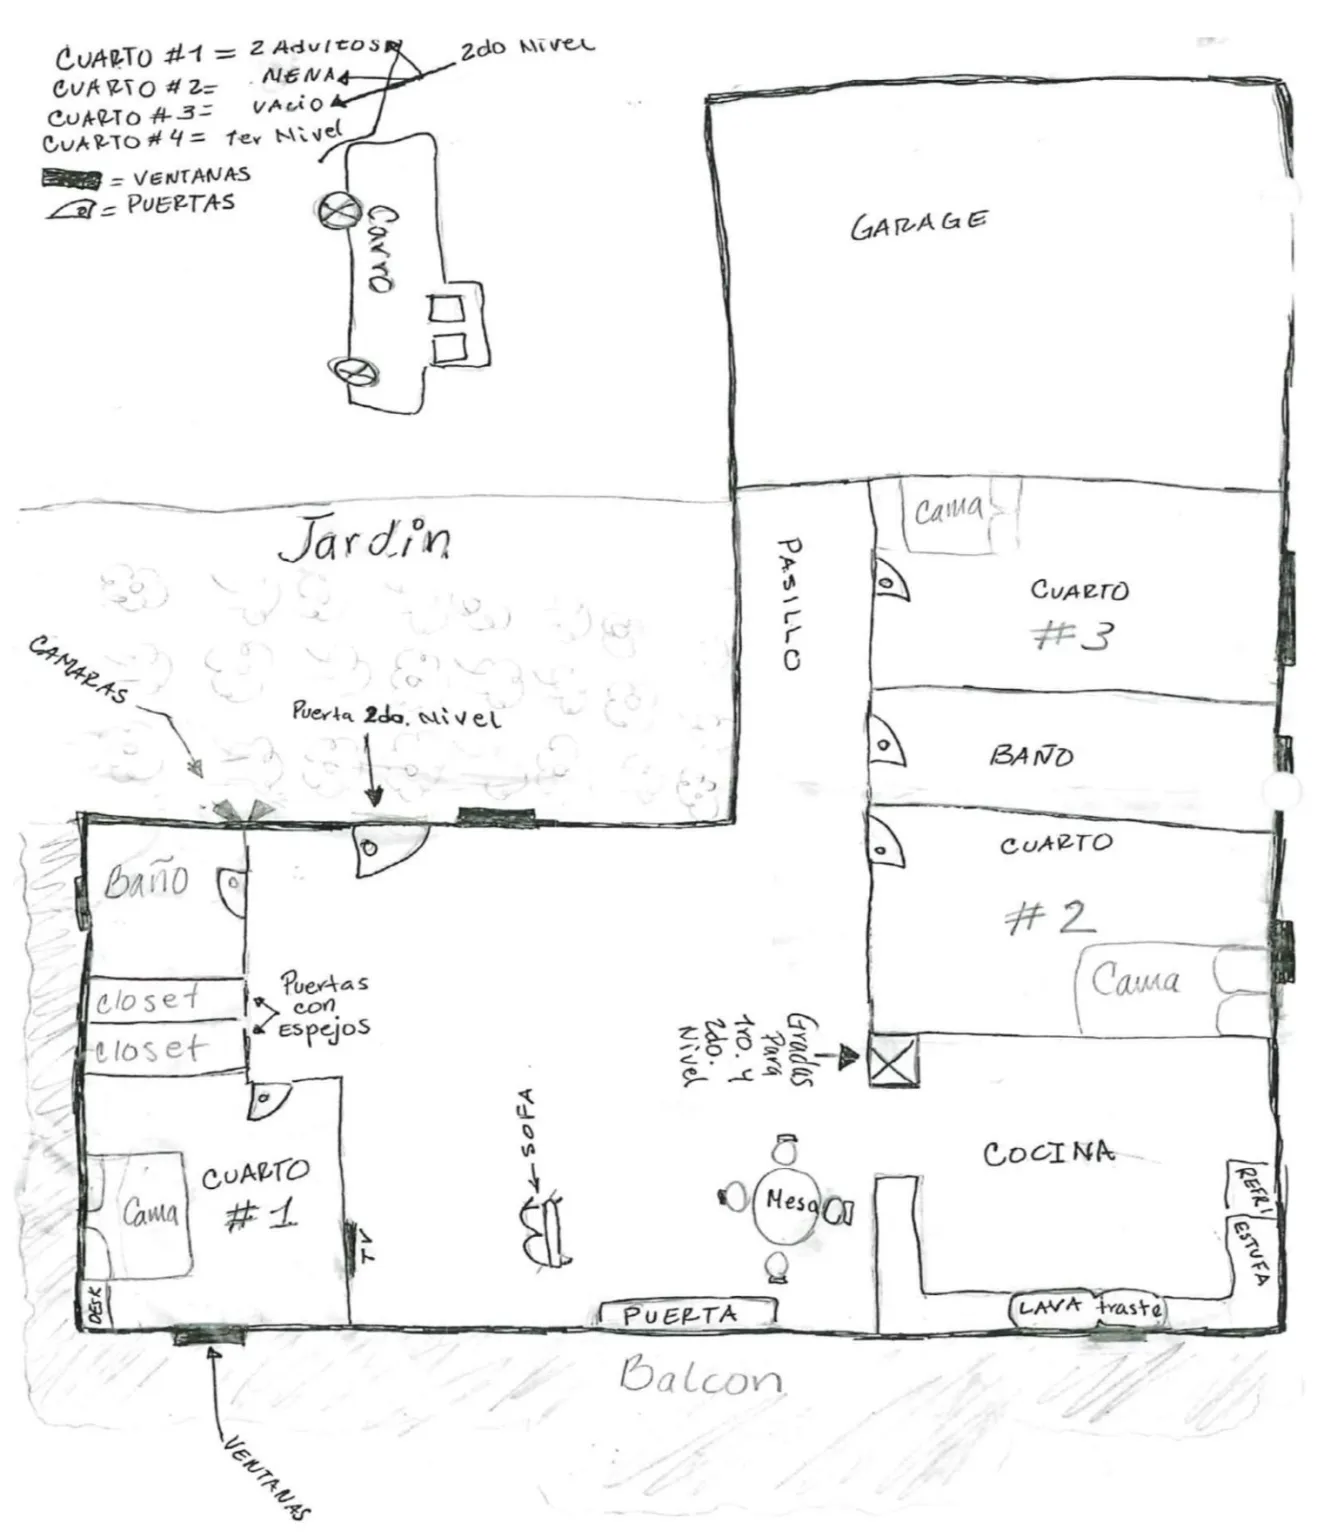 CUARTO #1 = 2 AdultOS
2do Nivel
CUARTO #2= NENA
CUARTO #3= VACIO
CUARTO #4= 1er Nivel
= VENTANAS
= PUERTAS
Carro
GARAGE
Jardin
PASILLO
Cama
CUARTO
#3
CAMARAS
Puerta 2do. Nivel
BAÑO
Baño
CUARTO
#2
Cama
closet
closet
Puertas
con
ESPEJOS
Gradas
Para
1ro. y
2do.
Nivel
SOFA
COCINA
CUARTO
#1
Cama
DESK
TV
Mesa
REFRI
ESTUFA
PUERTA
LAVA traste
Balcon
VENTANAS